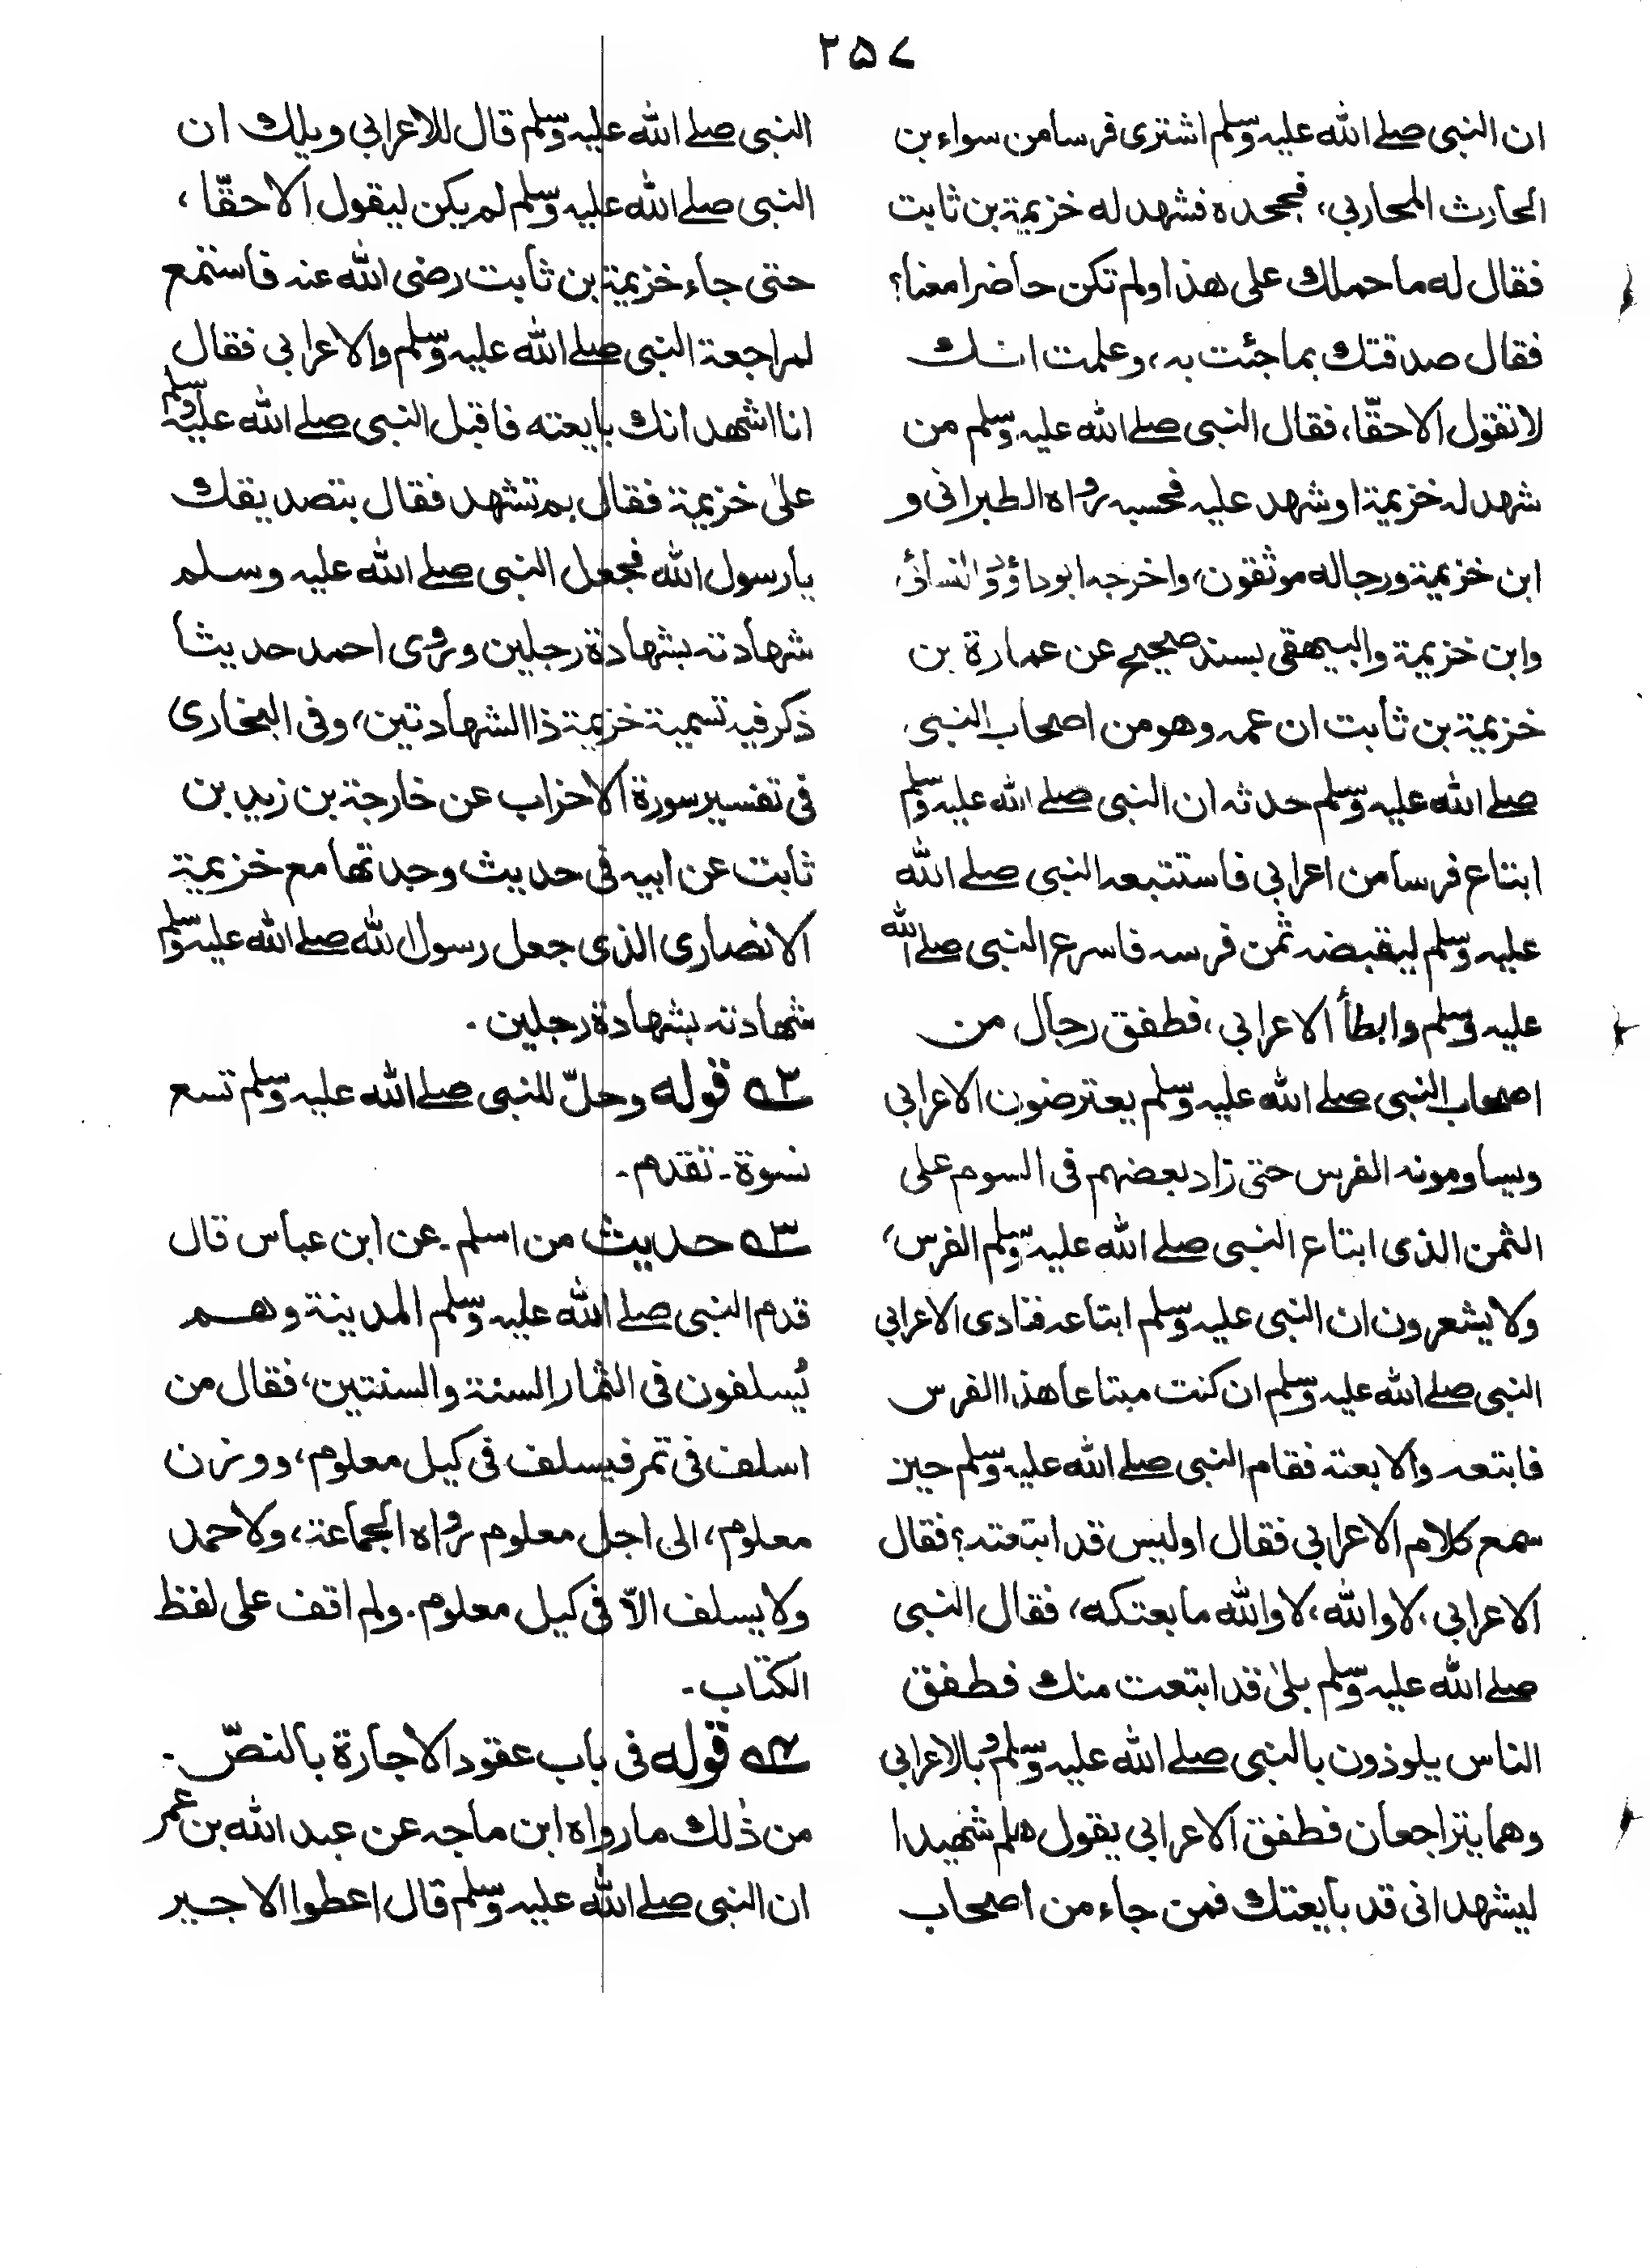 ۲۵۷
ان النبى صلے الله عليه وسلم اشترى فرسا من سواء بن
الحارث المحاربي، فجحده فشهد له خزيمة بن ثابت
فقال له ما حملك على هذا ولم تكن حاضرا معنا؟
فقال صدقتك بما جئت به، وعلمت انك
لا تقول الا حقّا، فقال النبى صلے الله عليه وسلم من
شهد له خزيمة او شهد عليه فحسبه رواه الطبرانى و
ابن خزيمة ورجاله موثقون، واخرجه ابو داؤد والنسائى
وابن خزيمة والبيهقى بسند صحيح عن عمارة بن
خزيمة بن ثابت ان عمه وهو من اصحاب النبى
صلے الله عليه وسلم حدثه ان النبى صلے الله عليه وسلم
ابتاع فرسا من اعرابي فاستتبعه النبى صلے الله
عليه وسلم ليقبضه ثمن فرسه فاسرع النبى صلے الله
عليه وسلم وابطأ الاعرابي، فطفق رجال من
اصحاب النبى صلے الله عليه وسلم يعترضون الاعرابي
ويساومونه الفرس حتى زاد بعضهم فى السوم على
الثمن الذى ابتاع النبى صلے الله عليه وسلم الفرس،
ولا يشعرون ان النبى عليه وسلم ابتاعه فنادى الاعرابي
النبى صلے الله عليه وسلم ان كنت مبتاعا هذا الفرس
فابتعه والا بعته فقام النبى صلے الله عليه وسلم حين
سمع كلام الاعرابي فقال اوليس قد ابتعته؟ فقال
الاعرابي، لا والله، لا والله ما بعتكه، فقال النبى
صلے الله عليه وسلم بلىٰ قد ابتعت منك فطفق
الناس يلوذون بالنبى صلے الله عليه وسلم وبالاعرابي
وهما يتراجعان فطفق الاعرابي يقول هلم شهيدا
ليشهد انى قد بايعتك فمن جاء من اصحاب
النبى صلے الله عليه وسلم قال للاعرابي ويلك ان
النبى صلے الله عليه وسلم لم يكن ليقول الا حقّا،
حتى جاء خزيمة بن ثابت رضى الله عنه فاستمع
لمراجعة النبى صلے الله عليه وسلم والاعرابي فقال
انا اشهد انك بايعته فاقبل النبى صلے الله عليه وسلم
علىٰ خزيمة فقال بم تشهد فقال بتصديقك
يا رسول الله فجعل النبى صلے الله عليه وسلم
شهادته بشهادة رجلين وروى احمد حديثا
ذكر فيه تسمية خزيمة ذا الشهادتين، وفى البخارى
فى تفسير سورة الاحزاب عن خارجة بن زيد بن
ثابت عن ابيه فى حديث وجدتها مع خزيمة
الانصارى الذى جعل رسول الله صلے الله عليه وسلم
شهادته بشهادة رجلين.
۵۲ قوله وحلّ للنبى صلے الله عليه وسلم تسع
نسوة۔ تقدم۔
۵۳ حديث من اسلم۔ عن ابن عباس قال
قدم النبى صلے الله عليه وسلم المدينة وهم
يُسلفون فى الثمار السنة والسنتين، فقال من
اسلف فى تمر فيسلف فى كيل معلوم، ووزن
معلوم، الى اجل معلوم رواه الجماعة، ولاحمد
ولا يسلف الاّ فى كيل معلوم. ولم اقف على لفظ
الكتاب۔
۵۴ قوله فى باب عقود الاجارة بالنصّ۔
من ذٰلك ما رواه ابن ماجه عن عبد الله بن عمر
ان النبى صلے الله عليه وسلم قال اعطوا الاجير